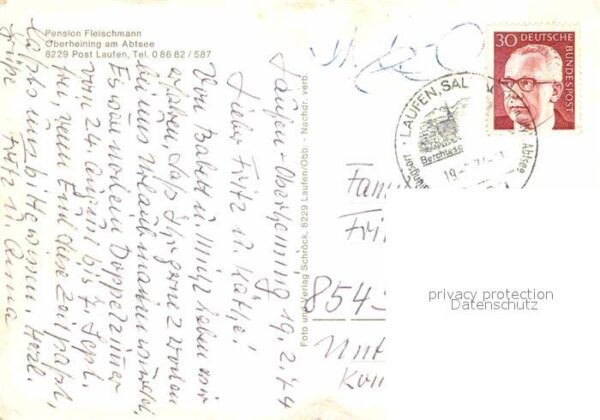 Pension Fleischmann
Oberheining am Abtsee
8229 Post Laufen, Tel. 0 86 82 / 587
Laufen-Oberheining 19.2.74
Lieber Fritz u. Käthe!
Von Babett u. Mich haben wir
erfahren, daß Ihr gerne 2 Wochen
bei uns Urlaub machen würdet,
Es wäre noch ein Doppelzimmer
vom 24. August bis 7. Sept.
frei, wenn Euch diese Zeit paßt,
laßt es uns bitte wissen. Herzl.
Grüße Fritz u. Anna
Foto und Verlag Schröck, 8229 Laufen/Obb. · Nachdr. verb.
30 DEUTSCHE
BUNDESPOST
LAUFEN, SAL
Abtsee
Berchtesg
19.
Fam
Fri
854
Unt
privacy protection
Datenschutz